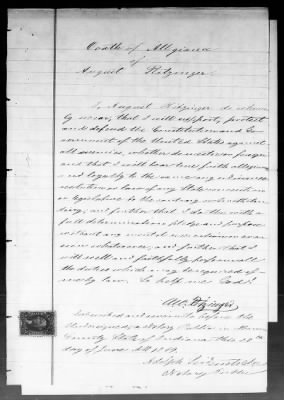 Oath of Allegiance
of
August Ritzinger.
I, August Ritzinger do solemnly
swear, that I will support, protect
and defend the Constitution and Gov
ernment of the United States against
all enemies, whether domestic or foreign
and that I will bear true faith allegiance
and loyalty to the same any ordinance
resolution or law of any State convention
or legislature to the contrary notwithstan
ding, and further that I do this with a
full determination pledge and purpose
without any mental reservation or eva
sion whatsoever, and further that I
will well and faithfully perform all
the duties which may be required of
me by law. So help me God!
Ritzinger
Subscribed and sworn to before the
Undersigned, a Notary Public in
County State of Indiana this
day of June AD 18
Adolph
Notary Public